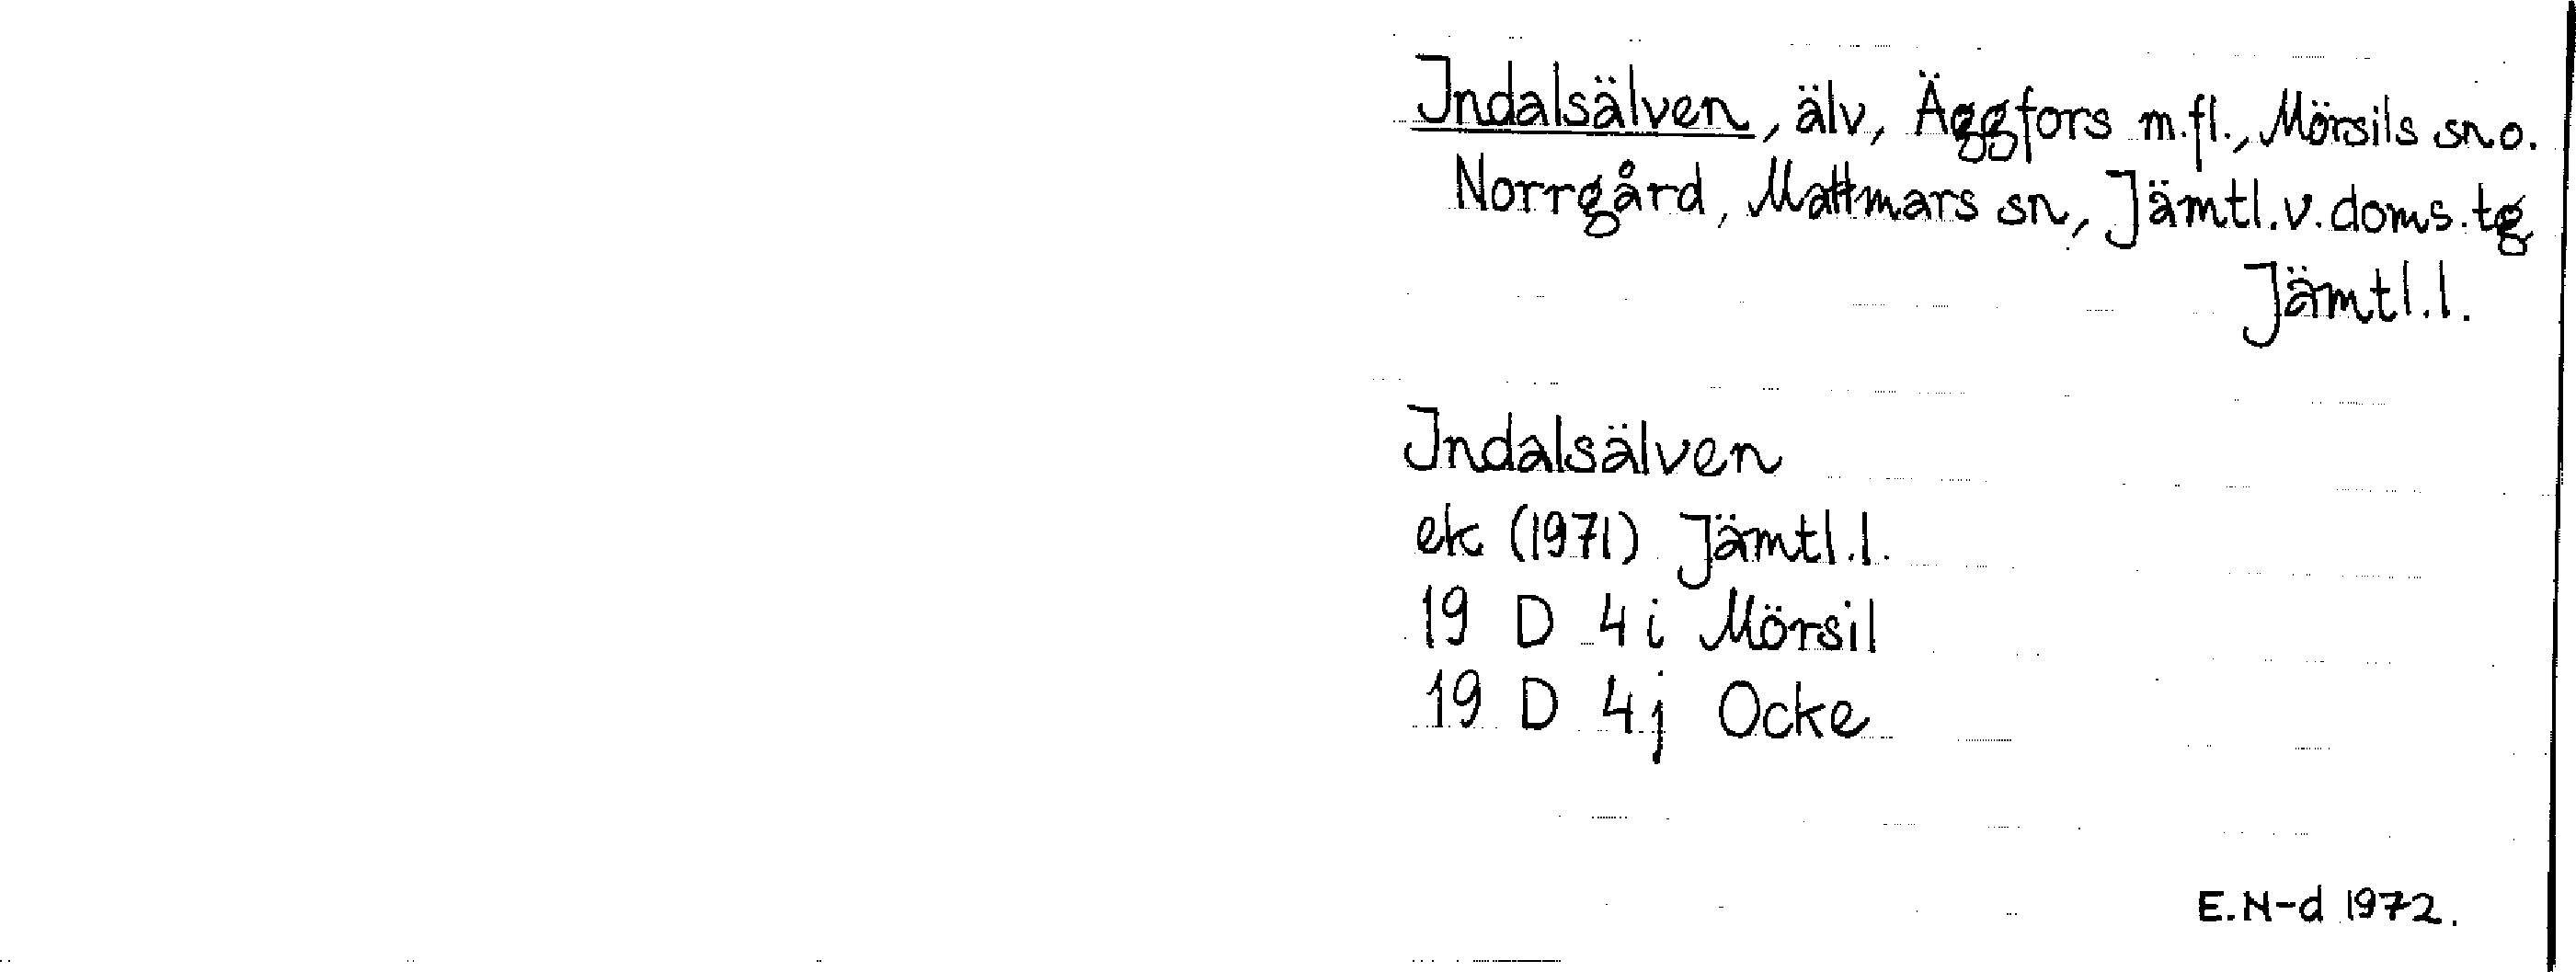 Indalsälven, älv, Äggfors m.fl., Mörsils sn o.
Norrgård, Mattmars sn, Jämtl.v.doms.tg
Jämtl.l.
Indalsälven
ek (1971) Jämtl.l.
19 D 4i Mörsil
19 D 4j Ocke
E.N-d 1972.